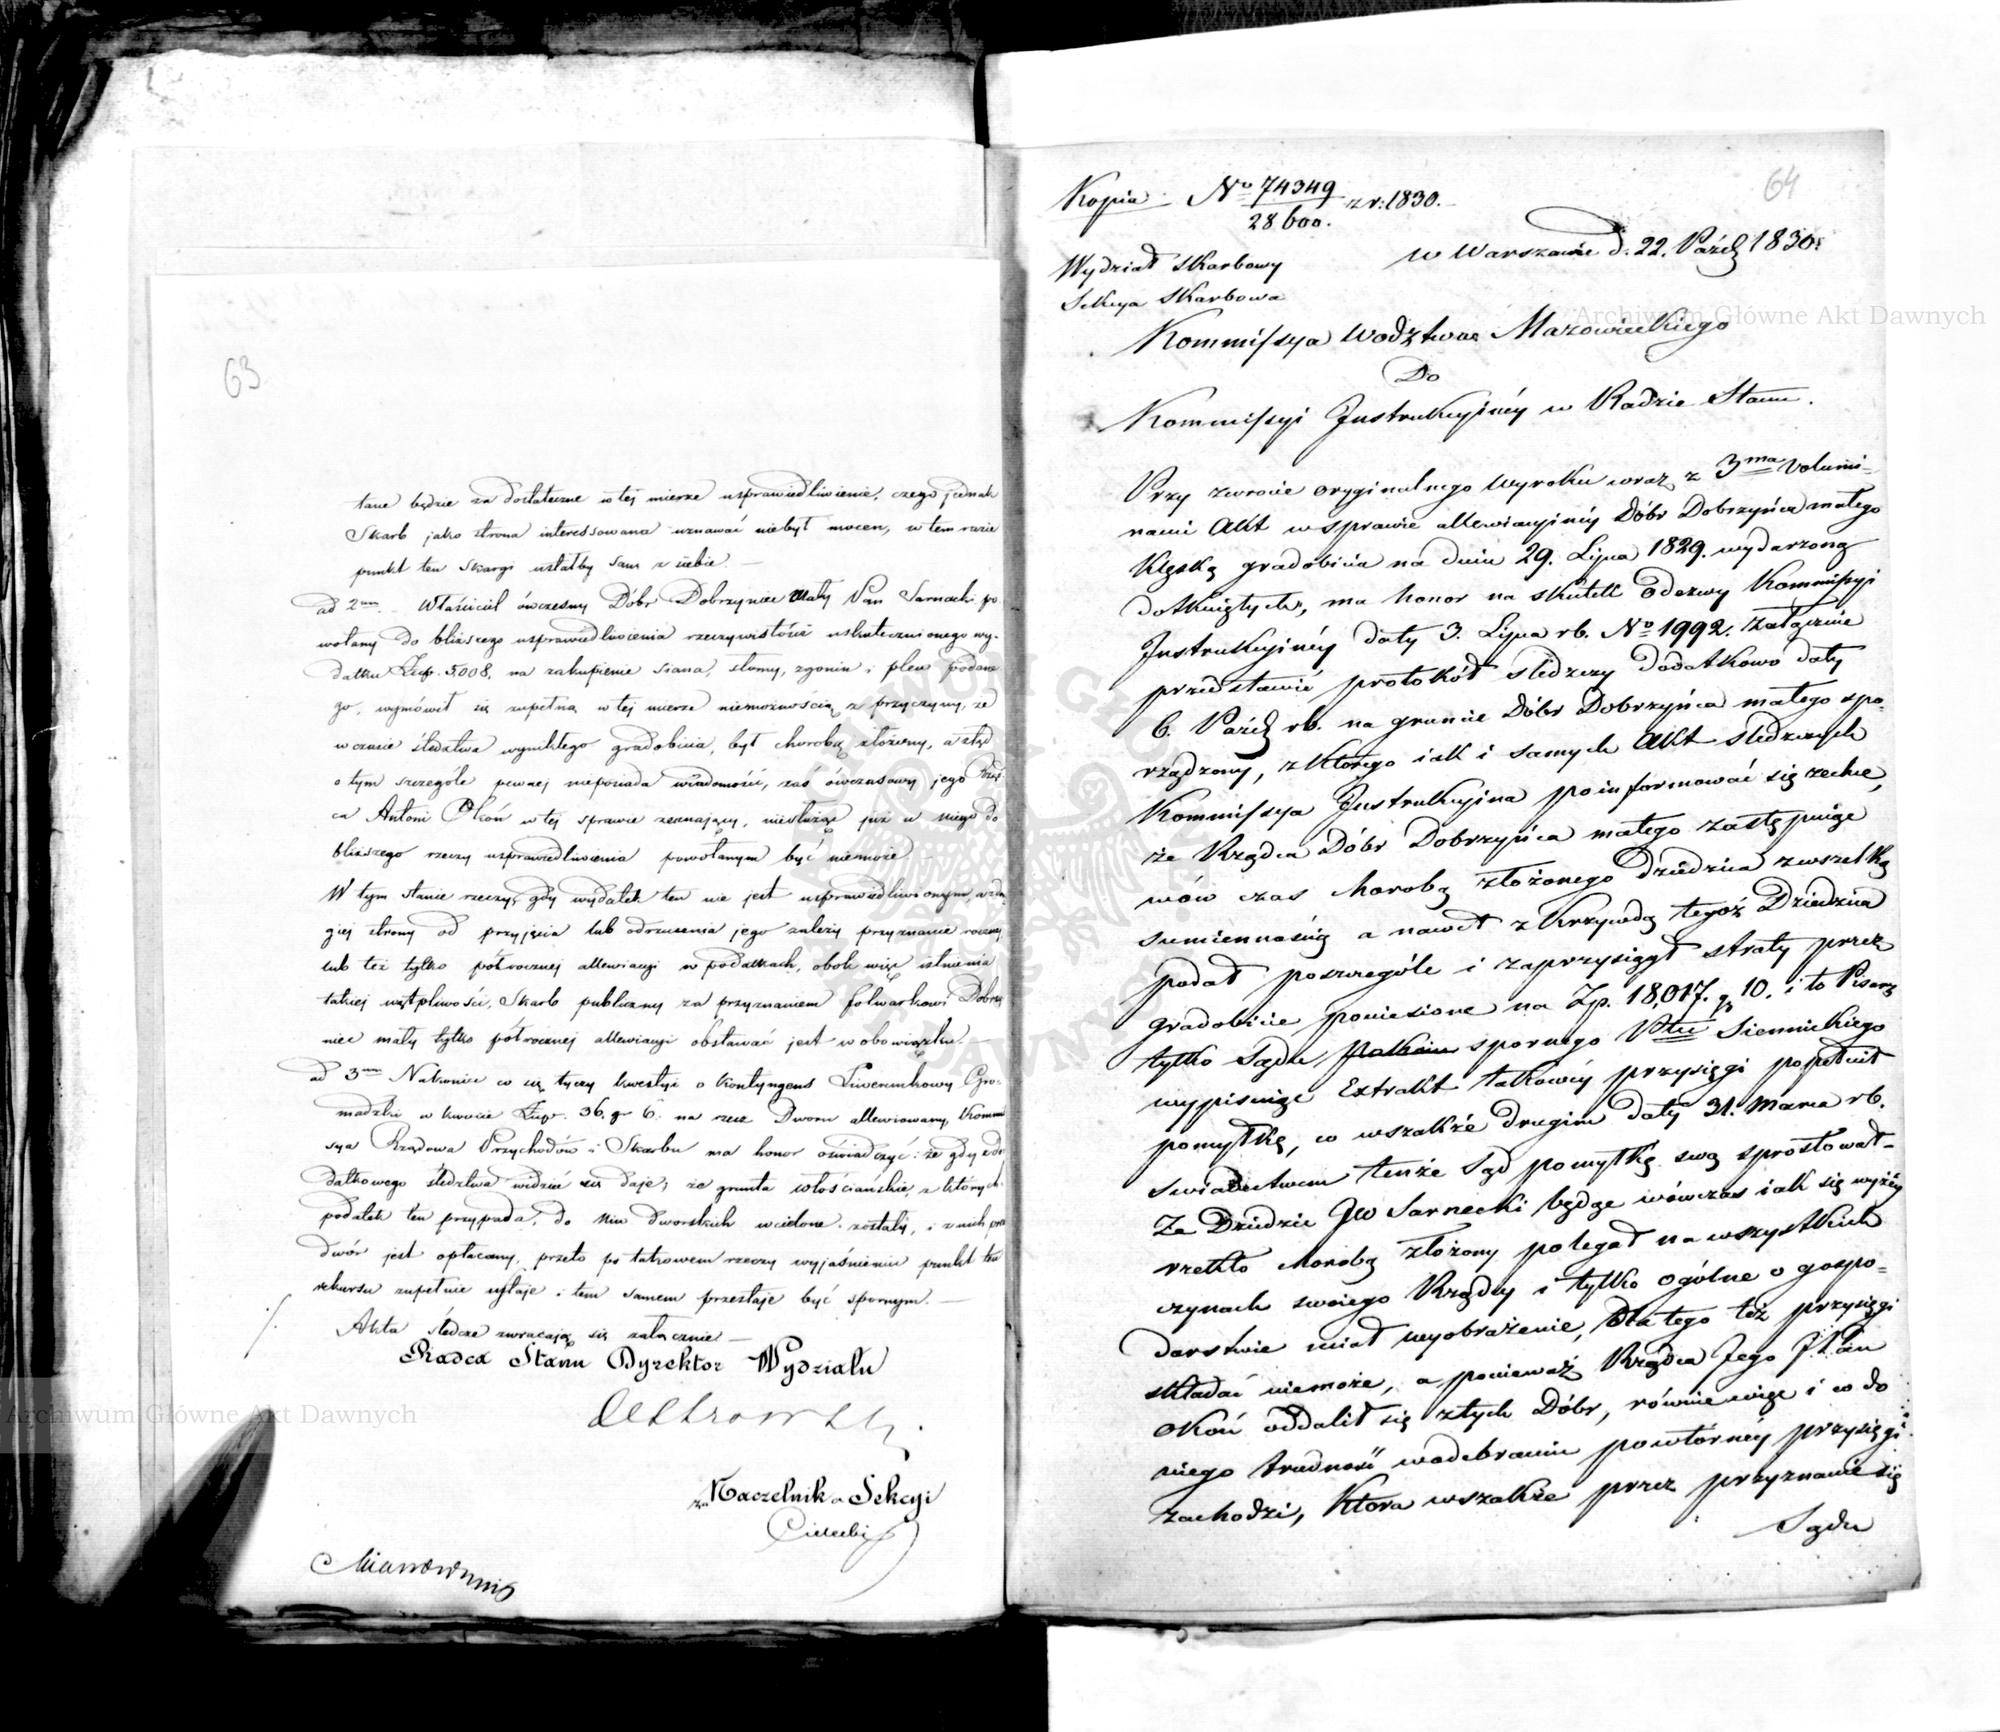 63
tane będzie za dostateczne w tej mierze usprawiedliwienie, czego jednak
Skarb jako strona interessowana uznawać niebył mocen, w tem razie
punkt ten skargi ustałby sam z siebie. —
ad 2um. Właściciel ówczesny Dóbr Dobrzyniec Mały Pan Sarnecki po-
wołany do bliższego usprawiedliwienia rzeczywistości uskutecznionego wy-
datku Złp. 5,008, na zakupienie siana, słomy, zgonin i plew podane
go, wymówił się zupełną w tej mierze niemożnością z przyczyny, że
w czasie śledztwa wynikłego gradobicia, był chorobą złożony, a ztąd
o tym szczególe pewnej nieposiada wiadomości, zaś ówczasowy jego Rząd
ca Antoni Okoń w tej sprawie zeznający, niesłużąc już u niego do
bliższego rzeczy usprawiedliwienia powołanym być niemoże —
W tym stanie rzeczy, gdy wydatek ten nie jest usprawiedliwionym, a dru
giej strony od przyjęcia lub odrzucenia jego zależy przyznanie roczney
lub też tylko półrocznej allewiacyi w podatkach, obok więc istnienia
takiej wątpliwości, Skarb publiczny za przyznaniem folwarkowi Dobrzy
niec mały tylko półrocznej allewiacyi obstawać jest w obowiązku. —
ad 3um Nakoniec co się tyczy kwestyi o kontyngens Liwerunkowy Gro-
madzki w kwocie Złp. 36. gr 6. na rzecz Dworu allewiowany, Kommis
sya Rządowa Przychodów i Skarbu ma honor oświadczyć: że gdy z do
datkowego śledztwa widzieć się daje, że grunta włościańskie, z których
podatek ten przypada, do Niw dworskich wcielone zostały, i z nich prze
dwór jest opłacany, przeto po takowem rzeczy wyjaśnieniu punkt ten
rekursu zupełnie ustaje i tem samem przestaje być spornym. —
Akta śledcze zwracają się załącznie —
Radca Stanu Dyrektor Wydziału
za Naczelnika Sekcyi
64
Kopia No 74349/28600. z r: 1830.
w Warszawie d. 22. Paźdź 1830r
Wydział Skarbowy
Sekcya Skarbowa
Kommissya Wodztwa Mazowieckiego
Do
Kommissyi Instrukcyiney w Radzie Stanu.
Przy zwrocie oryginalnego Wyroku wraz z 3ma Volumi-
nami Akt w sprawie allewiacyiney Dóbr Dobrzyńca małego
klęską gradobicia na dniu 29. Lipca 1829. wydarzoną
dotkniętych, ma honor na skutek Odezwy Kommissyi
Instrukcyiney daty 3. Lipca rb. No 1992. załącznie
przedstawić protokół śledczy dodatkowo daty
6. Paźdź rb. na gruncie Dóbr Dobrzyńca małego spo-
rządzony, z którego iak i samych Akt śledczych
Kommissya Instrukcyina poinformować się zechce,
że Rządca Dóbr Dobrzyńca małego zastępuiąc
wów czas chorobą złożonego Dziedzica z wszelką
sumiennością a nawet z krzywdą tegoż Dziedzica
podał poszczególe i zaprzysiągł straty przez
gradobicie poniesione na Zp. 18,017. gr 10. i to Pisarz
tylko Sądu spornego Ptu Siennickiego
wypisuiąc Extrakt takowey przysięgi popełnił
pomyłkę, co wszakże drugim daty 31. Marca rb.
świadectwem tenże Sąd pomyłkę swą sprostował —
Że Dziedzic JW Sarnecki będąc wówczas iak się wyżey
rzekło chorobą złożony polegał na wszystkich
czynach swoiego Rządcy i tylko ogólne o gospo-
darstwie miał wyobrażenie, dla tego też przysięgi
składać niemoże, a ponieważ Rządca Jego JPan
Okoń oddalił się z tych Dóbr, równie więc i co do
niego trudność w odebraniu powtórney przysięgi
zachodzi, która wszakże przez przyznanie się
Sądu
Archiwum Główne Akt Dawnych
Archiwum Główne Akt Dawnych